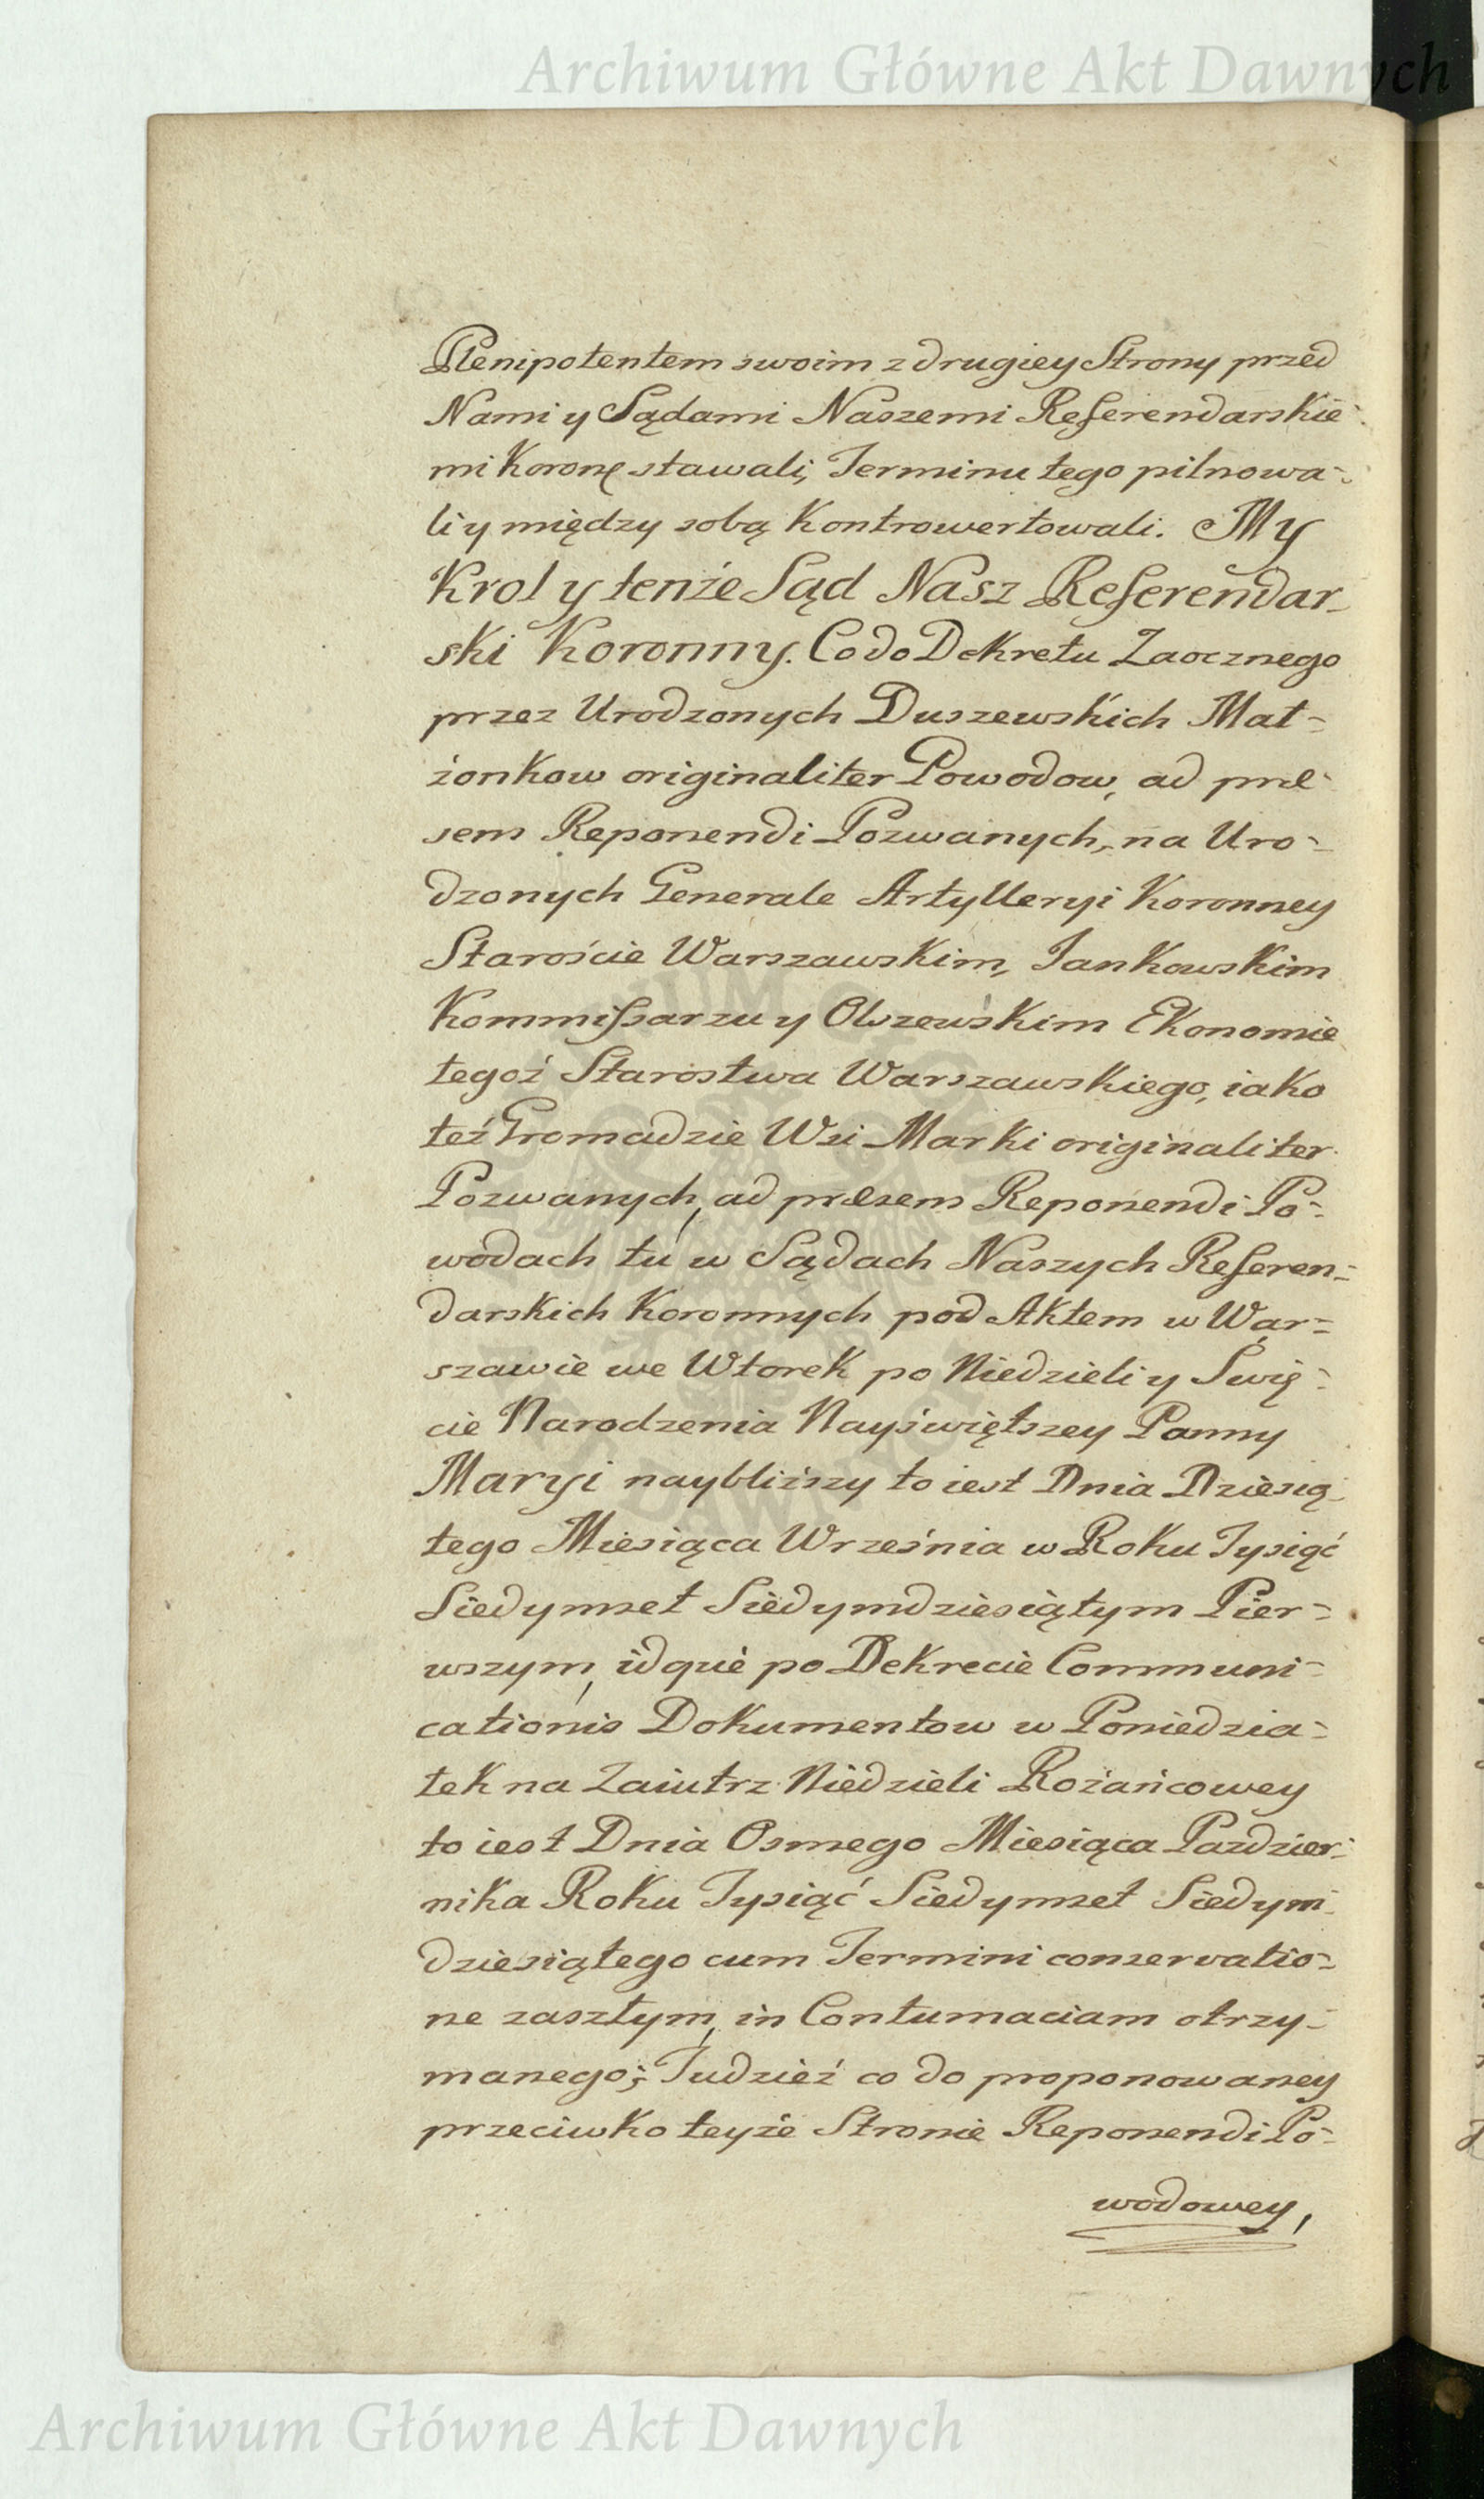 Archiwum Główne Akt Dawnych
Plenipotentem swoim z drugiey Strony przed
Nami y Sądami Naszemi Referendarskie-
mi Koronę stawali, Terminu tego pilnowa-
li y między sobą Kontrowertowali. My
Krol y tenże Sąd Nasz Referendar-
ski Koronny. Co do Dekretu Zaocznego
przez Urodzonych Duszewskich Mał-
żonkow originaliter Powodow, ad præ-
sens Reponendi Pozwanych, na Uro-
dzonych Generale Artylleryi Koronney
Staroście Warszawskim, Jankowskim
Kommissarzu y Olszewskim Ekonomie
tegoż Starostwa Warszawskiego, iako
też Gromadzie Wsi Marki originaliter
Pozwanych, ad præsens Reponendi Po-
wodach tu w Sądach Naszych Referen-
darskich Koronnych pod Aktem w War-
szawie we Wtorek po Niedzieli y Swię-
cie Narodzenia Nayświętszey Panny
Maryi naybliższy to iest Dnia Dziesią-
tego Miesiąca Września w Roku Tysiąć
Siedymset Siedymdziesiątym Pier-
wszym, idque po Dekrecie Communi-
cationis Dokumentow w Poniedzia-
łek na Zaiutrz Niedzieli Rożańcowey
to iest Dnia Osmego Miesiąca Pazdzier-
nika Roku Tysiąć Siedymset Siedym-
dziesiątego cum Termini conservatio-
ne zaszłym, in Contumaciam otrzy-
manego; Tudzież co do proponowaney
przeciwko teyże Stronie Reponendi Po-
wodowey,
Archiwum Główne Akt Dawnych